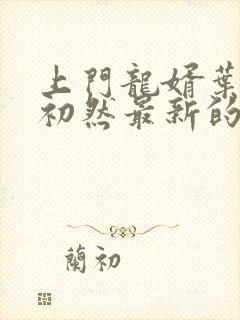 上門龍婿葉
初然最新的
蘭初